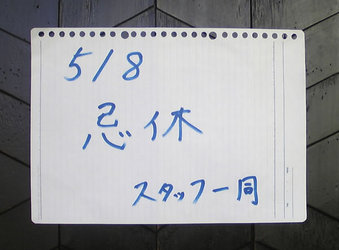 5/8
忌休
スタッフ一同